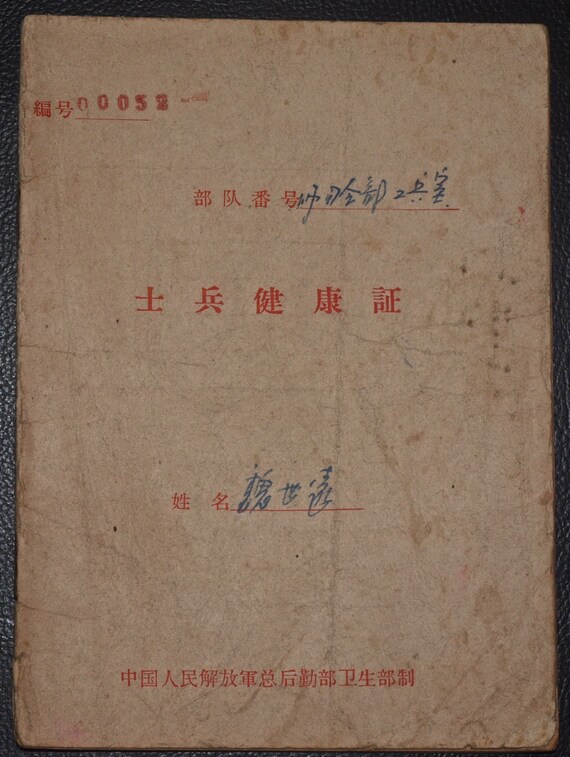 編号 00052
部队番号 师司令部工兵室
士兵健康証
姓名 魏世遠
中国人民解放軍总后勤部卫生部制